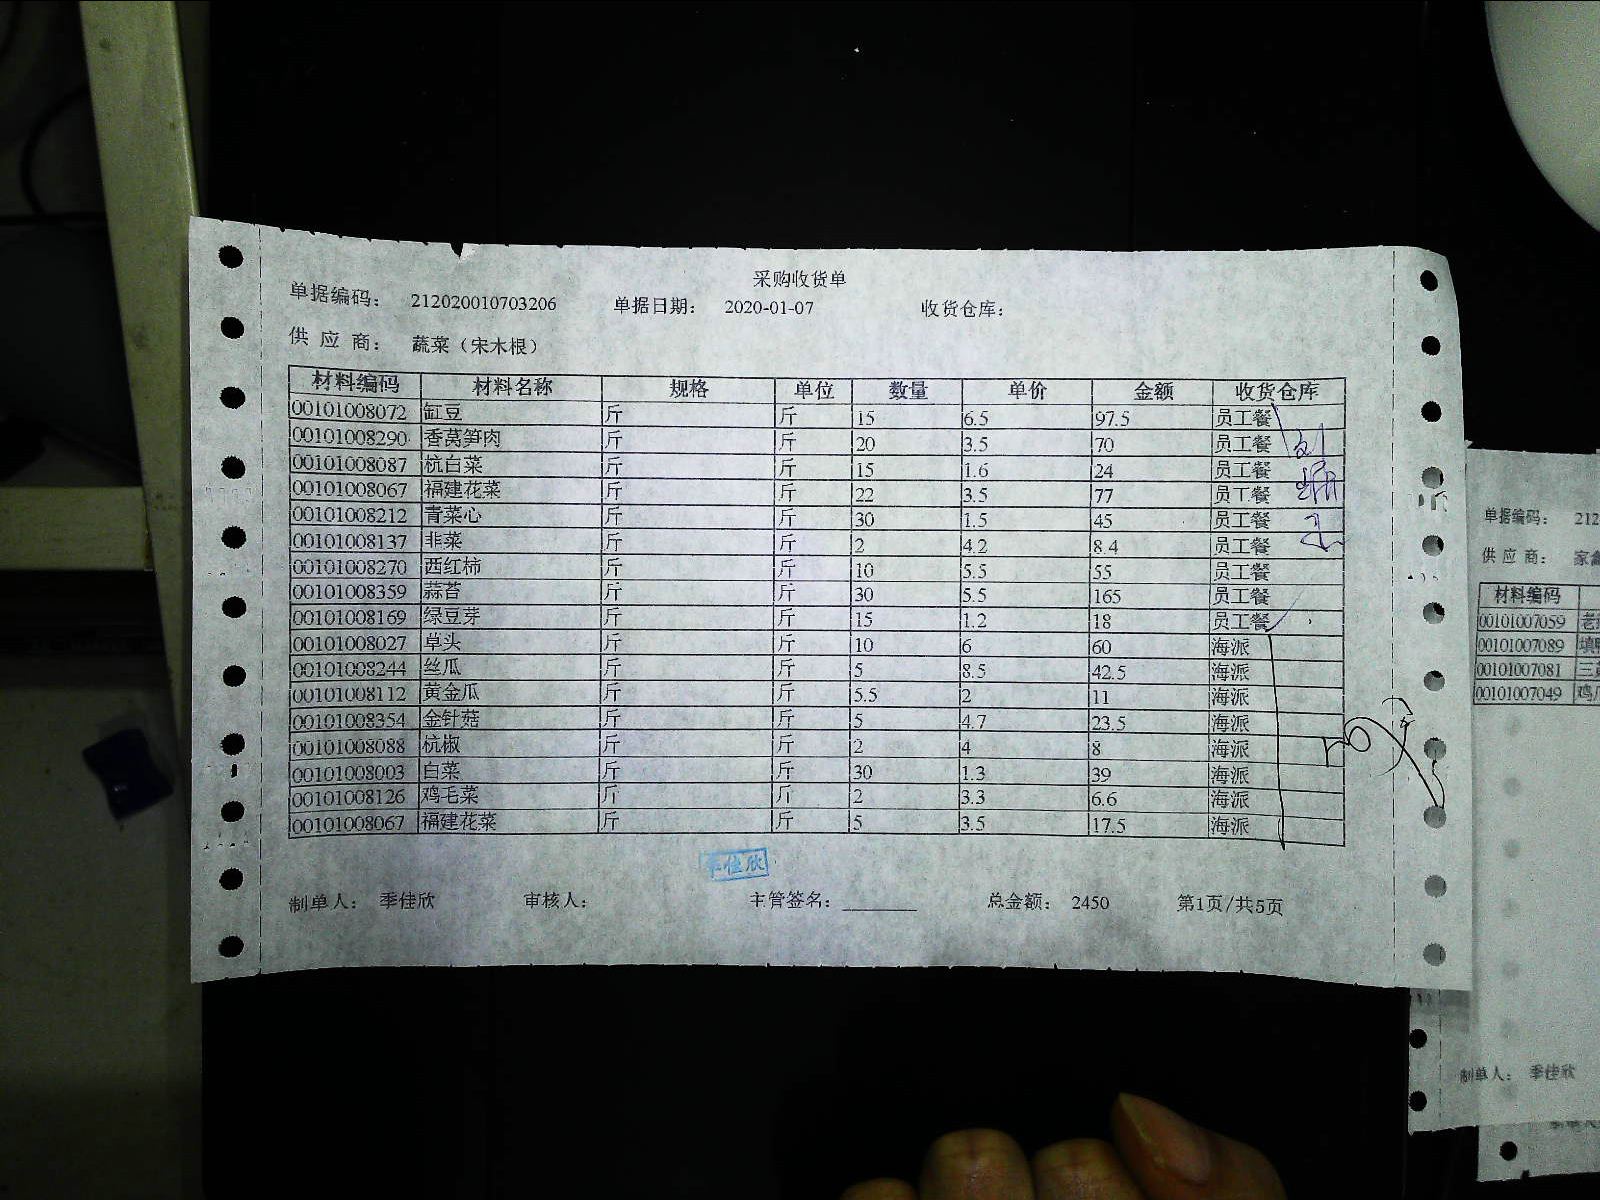 采购收货单
单据编码： 212020010703206 单据日期： 2020-01-07 收货仓库：
供 应 商： 蔬菜（宋木根）
材料编码 材料名称 规格 单位 数量 单价 金额 收货仓库
00101008072 缸豆 斤 斤 15 6.5 97.5 员工餐
00101008290 香莴笋肉 斤 斤 20 3.5 70 员工餐
00101008087 杭白菜 斤 斤 15 1.6 24 员工餐
00101008067 福建花菜 斤 斤 22 3.5 77 员工餐
00101008212 青菜心 斤 斤 30 1.5 45 员工餐
00101008137 韭菜 斤 斤 2 4.2 8.4 员工餐
00101008270 西红柿 斤 斤 10 5.5 55 员工餐
00101008359 蒜苔 斤 斤 30 5.5 165 员工餐
00101008169 绿豆芽 斤 斤 15 1.2 18 员工餐
00101008027 草头 斤 斤 10 6 60 海派
00101008244 丝瓜 斤 斤 5 8.5 42.5 海派
00101008112 黄金瓜 斤 斤 5.5 2 11 海派
00101008354 金针菇 斤 斤 5 4.7 23.5 海派
00101008088 杭椒 斤 斤 2 4 8 海派
00101008003 白菜 斤 斤 30 1.3 39 海派
00101008126 鸡毛菜 斤 斤 2 3.3 6.6 海派
00101008067 福建花菜 斤 斤 5 3.5 17.5 海派
季佳欣
制单人： 季佳欣 审核人： 主管签名： 总金额： 2450 第1页/共5页
单据编码： 212
供 应 商： 家禽
材料编码
00101007059
00101007089
00101007081 三
00101007049 鸡
制单人： 季佳欣